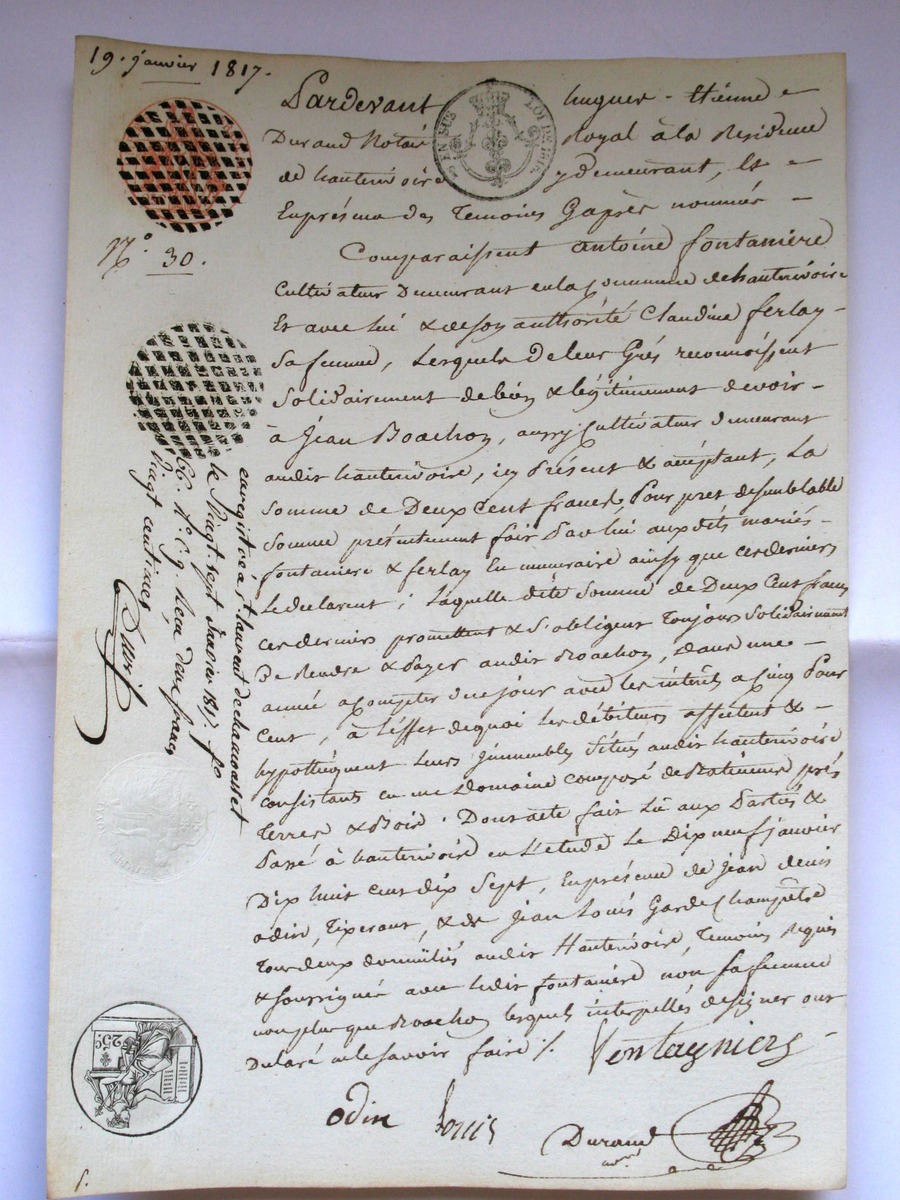 19. janvier 1817.
Pardevant hugues - Etienne
Durand Notaire Royal à la Residence
de hauterivoire y demeurant, Et
En présence des Temoins Cy après nommés
EN SUS LOI DE 1816
N.° 30.
Comparaissent antoine fontaniere
Cultivateur Demeurant en la Commune de hauterivoire
Et avec lui & de son authorité Claudine ferlay
Sa femme, Lesquels de leur Grés reconnoissent
Solidairement de bien & légitimement devoir
à Jean Boachon, aussy Cultivateur Demeurant
audit hauterivoire, icy Présent & acceptant, La
Somme de Deux Cent francs Pour pret de semblable
Somme présentement fait Par lui aux dits mariés
fontaniere & ferlay En numeraire ainsy que ces derniers
Le declarent ; Laquelle dite Somme de Deux Cent francs
ces derniers promettent & S'obligent Toujours Solidairement
De Rendre & Payer audit Boachon, Dans une
année a Compter de ce jour avec les intérêts a Cinq Pour
Cent, à L'effet de quoi Les débiteurs affectent &
hypothequent Leurs Jmmeubles Situés audit hauterivoire
Consistants en un Domaine Composé de Batiments prés
Terres & Bois. Dont acte fait Lû aux Parties &
Passé à hauterivoire en L'étude Le Dix neuf janvier
Dix huit cent dix Sept, En présence de Jean denis
odin, Tixerant, & de Jean Louis Garde Champêtre
Tous deux domiciliés audit Hauterivoire, Temoins Requis
& Soussignés avec Ledit fontaniere non Sa femme
non plus que Boachon lesquels interpellés de signer ont
Declaré ne le Savoir faire /.
enregistré à St laurent de chamousset
le Vingt sept Janvier 1817. f°
66. R° C. 9. Reçu deux francs
Vingt centimes
25c.
odin Louis
Durand